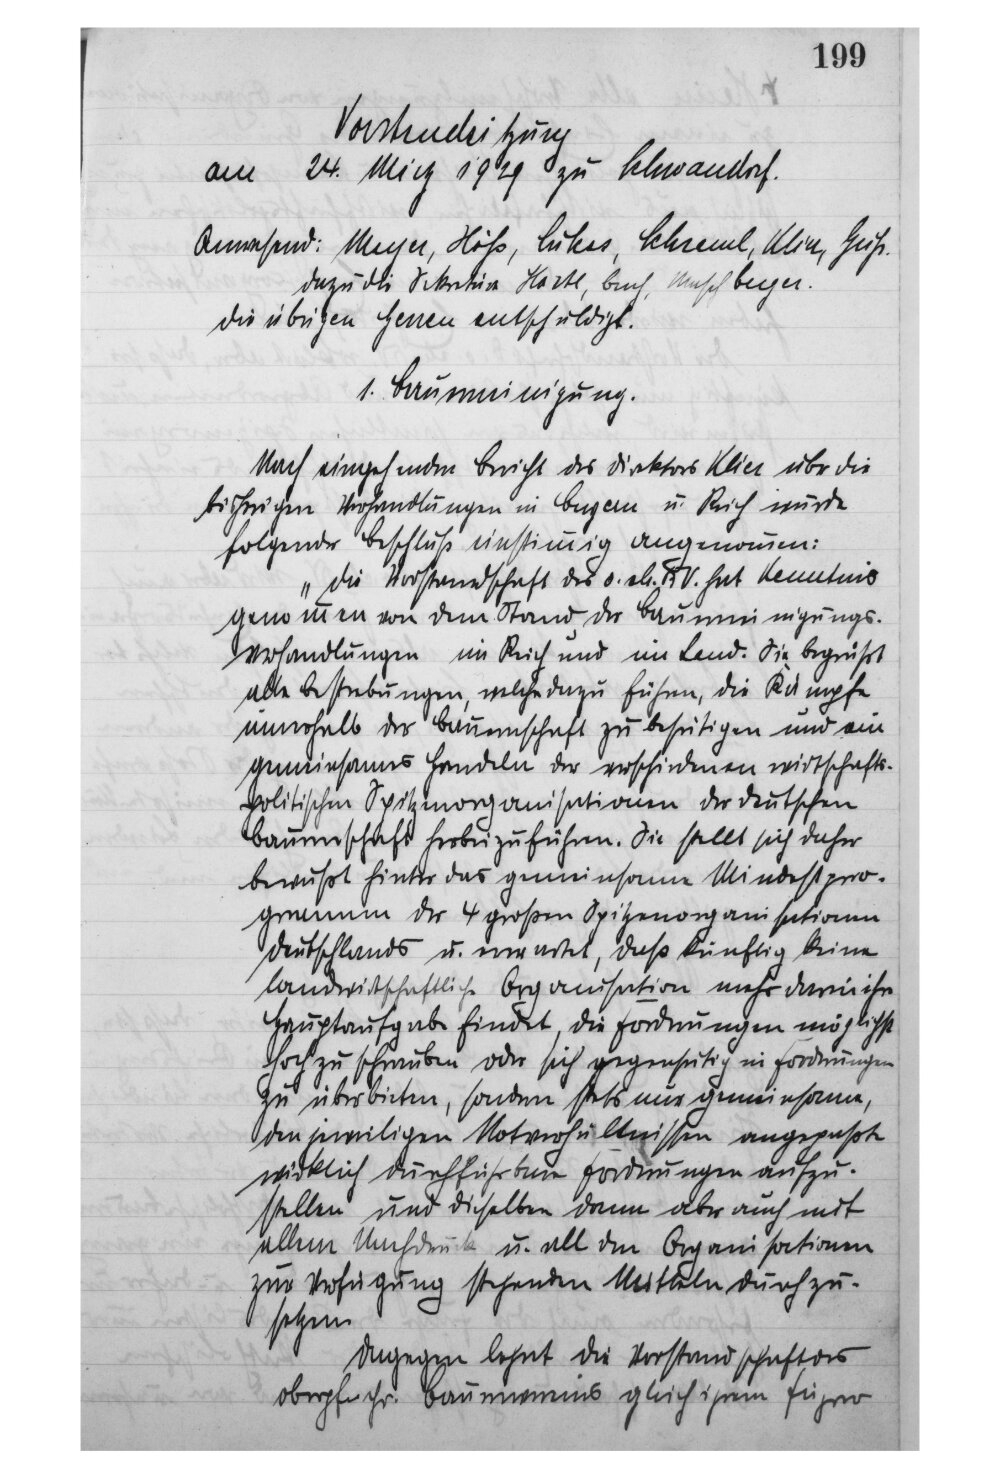 199
Vorstandsitzung
am 24. März 1929 zu Schwandorf.
Anwesend: Mayer, Höß, Lukas, Schreml, Klier,
dazu die Sekretäre Hartl,
die übrigen Herren entschuldigt.
1. Bauerneinigung.
Nach eingehenden Bericht des Direktors Klier über die
bisherigen Verhandlungen in Bayern u. Reich wurde
folgender Beschluß einstimmig angenommen:
„Die Vorstandschaft des o. ch. BV. hat Kenntnis
genommen von dem Stand der Bauerneinigungs-
verhandlungen im Reich und im Land. Sie begrüßt
alle Bestrebungen, welche dazu führen, die Kämpfe
innerhalb der Bauernschaft zu beseitigen und ein
gemeinsames Handeln der verschiedenen wirtschafts-
politischen Spitzenorganisationen der deutschen
Bauernschaft herbeizuführen. Sie stellt sich daher
bewußt hinter das gemeinsame Mindestpro-
gramm der 4 großen Spitzenorganisationen
Deutschlands u. erwartet, daß künftig keine
landwirtschaftliche Organisation mehr darin ihre
Hauptaufgabe findet, die Forderungen möglichst
hoch zu schrauben oder sich gegenseitig in Forderungen
zu überbieten, sondern stets nur gemeinsame,
den jeweiligen Notverhältnissen angepaßte
wirklich durchführbare Forderungen aufzu-
stellen und dieselben dann aber auch mit
allem Nachdruck u. all den Organisationen
zur Verfügung stehenden Mitteln durchzu-
setzen.
Dagegen lehnt die Vorstandschaft des
oberpf. chr. Bauernvereins gleich ihrem Führer